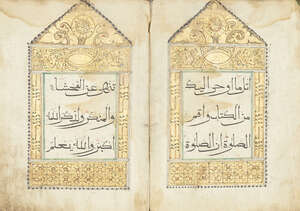 اتل ما اوحي اليك
من الكتاب واقم
الصلوة ان الصلوة
تنهى عن الفحشاء
والمنكر ولذكر الله
اكبر والله يعلم